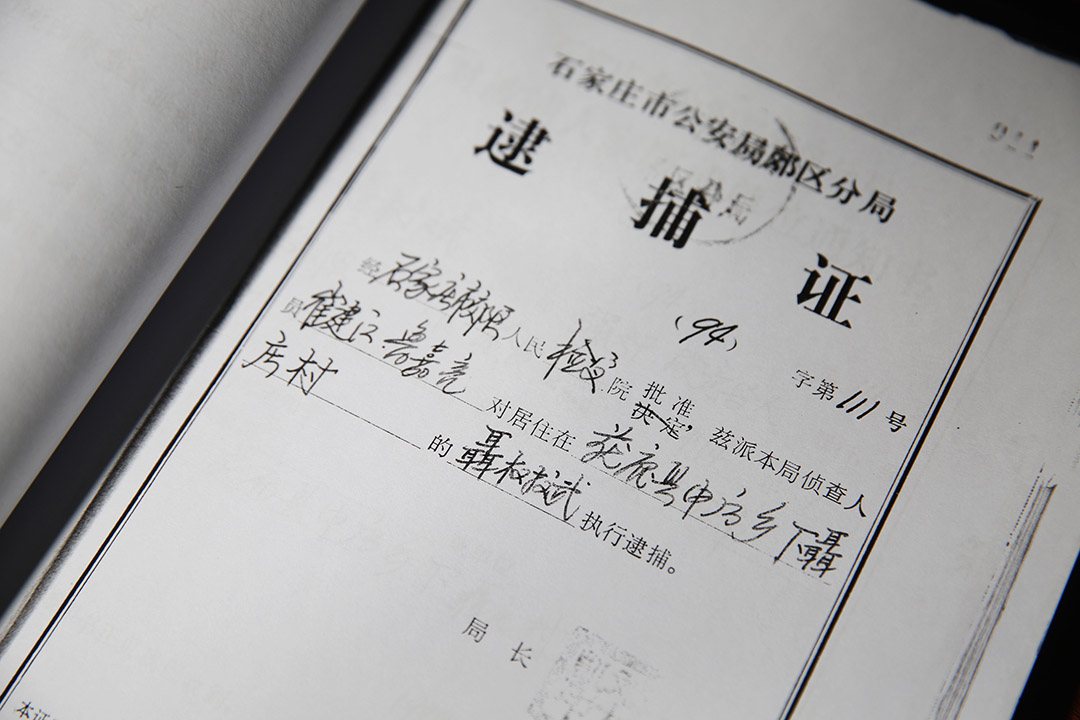 石家庄市公安局郊区分局
逮捕证
(94) 字第111号
经石家庄市郊区人民检察院批准决定，兹派本局侦查人
员崔建江 鲁嘉亮 对居住在获鹿县申后乡下聂
庄村 的聂树斌执行逮捕。
局长
本证